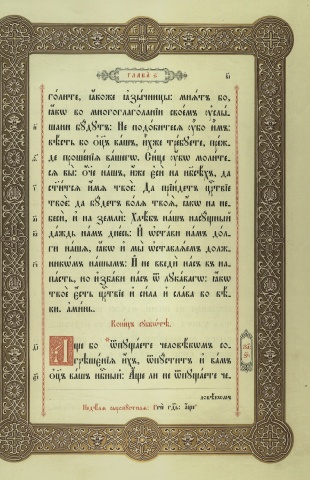 ГЛАВА ѕ҃
голите, ꙗкоже ꙗзычницы: мнѧт бо,
ꙗкѡ во многоглаголании своем ᲂуслы-
шани будутъ: Не подобитесѧ ᲂубо им:
вѣстъ бо ѻц҃ъ вашъ, ихже требуете, преж-
де прошениѧ вашегѡ. Сице ᲂубѡ молите-
сѧ вы: ѻч҃е нашъ, иже еси на нб҃сѣхъ, да
ст҃итсѧ имѧ твое: Да приидетъ цр҃твие
твое: да будетъ волѧ твоѧ, ꙗкѡ на не-
беси, и на земли: Хлѣбъ нашъ насущный
даждь намъ днесь: И ѡстави намъ дол-
ги нашѧ, ꙗкѡ и мы ѡставлѧемъ долж-
никѡмъ нашымъ: И не введи насъ въ на-
пасть, но избави насъ ѿ лукавагѡ: ꙗкѡ
твое есть цр҃твие и сила и слава во вѣ-
ки, аминь.
Конецъ субботѣ.
Аще бо ѿпущаете человѣкѡмъ со-
грѣшениѧ ихъ, ѿпуститъ и вамъ
ѻц҃ъ вашъ нб҃ный: Аще ли не ѿпущаете че-
ловѣкѡмъ
Недѣлѧ сыропустнаѧ: Рече гд҃ь: аще